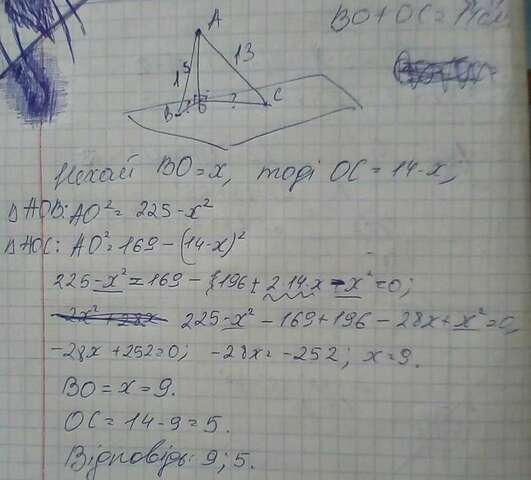 BO+OC=14см
A
15
13
B ? O ? C
Нехай BO=x, тоді OC=14-x;
△AOB: AO²=225-x²
△AOC: AO²=169-(14-x)²
225-x²=169-196+2·14·x-x²=0;
225-x²-169+196-28x+x²=0,
-28x+252=0; -28x=-252; x=9.
BO=x=9.
OC=14-9=5.
Відповідь: 9; 5.